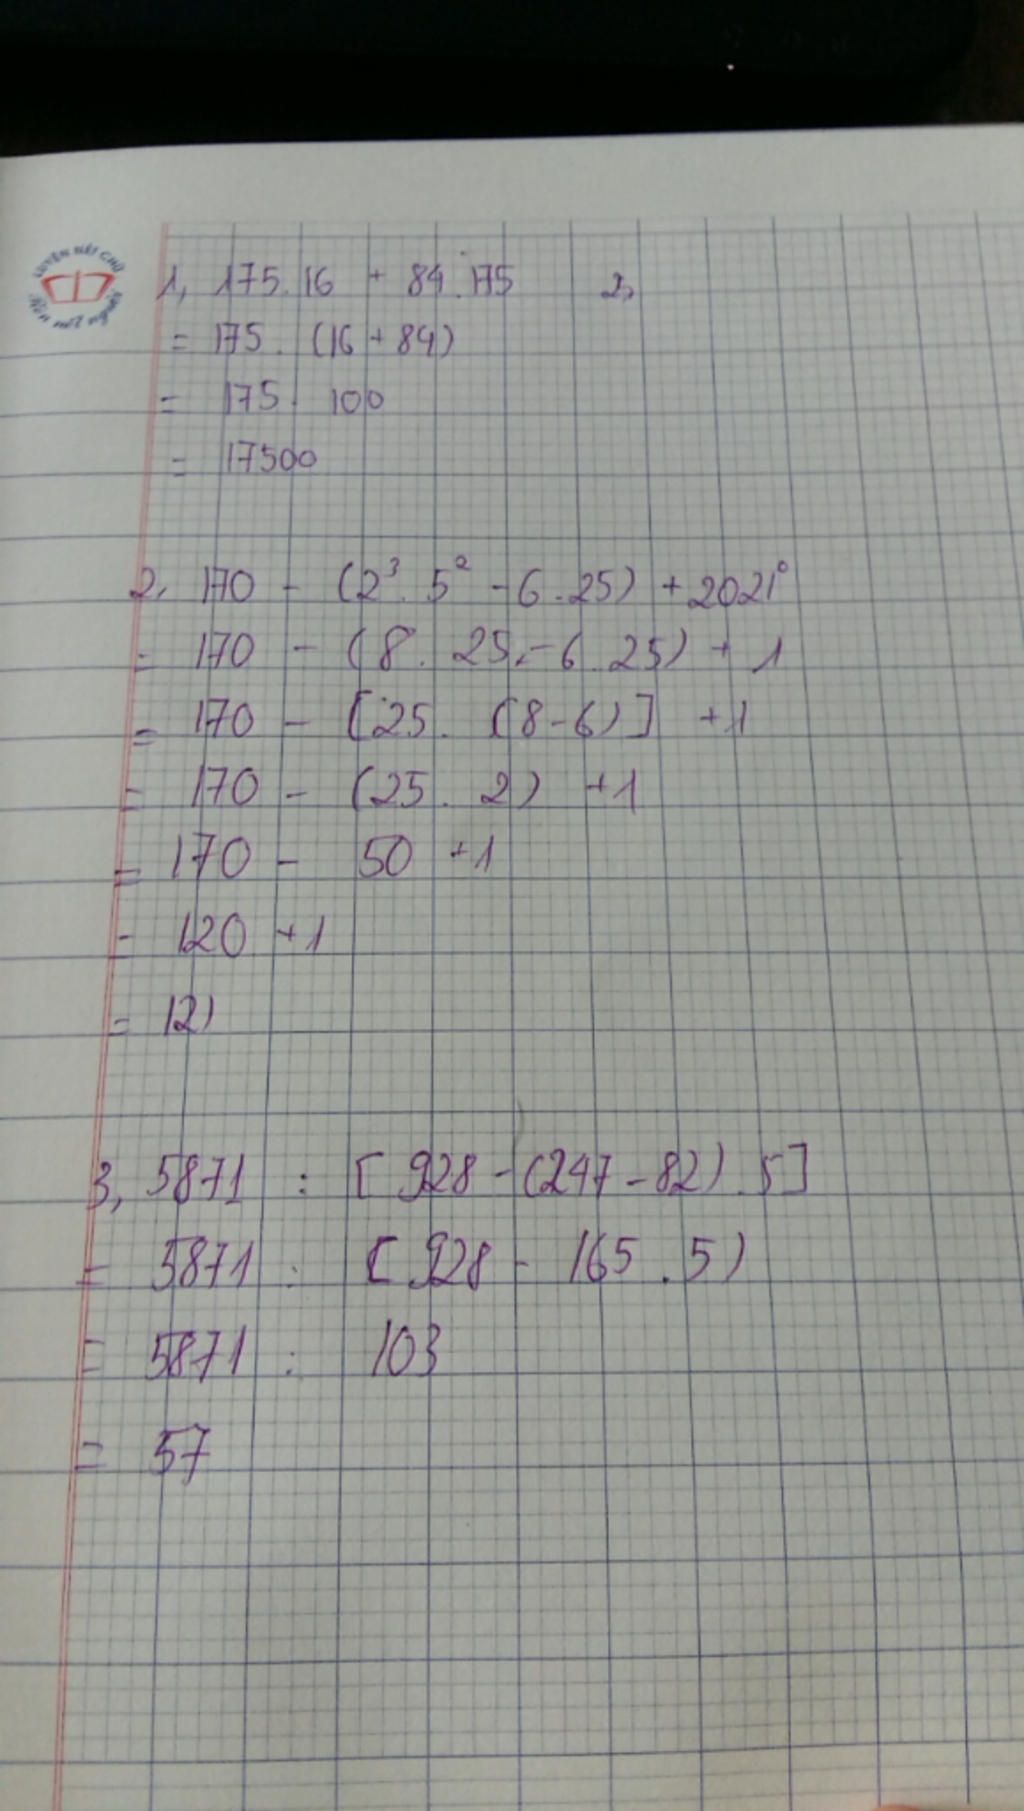 LUYỆN NÉT CHỮ
Rèn nết người
1, 175.16 + 84.175 2,
= 175. (16 + 84)
= 175. 100
= 17500
2, 170 - (2³. 5² - 6.25) + 2021⁰
= 170 - (8. 25 - 6.25) + 1
= 170 - [25. (8-6)] +1
= 170 - (25. 2) +1
= 170 - 50 +1
= 120 +1
= 121
3, 5871 : [928 - (247 - 82) .5]
= 5871 : [928 - 165 .5)
= 5871 : 103
= 57